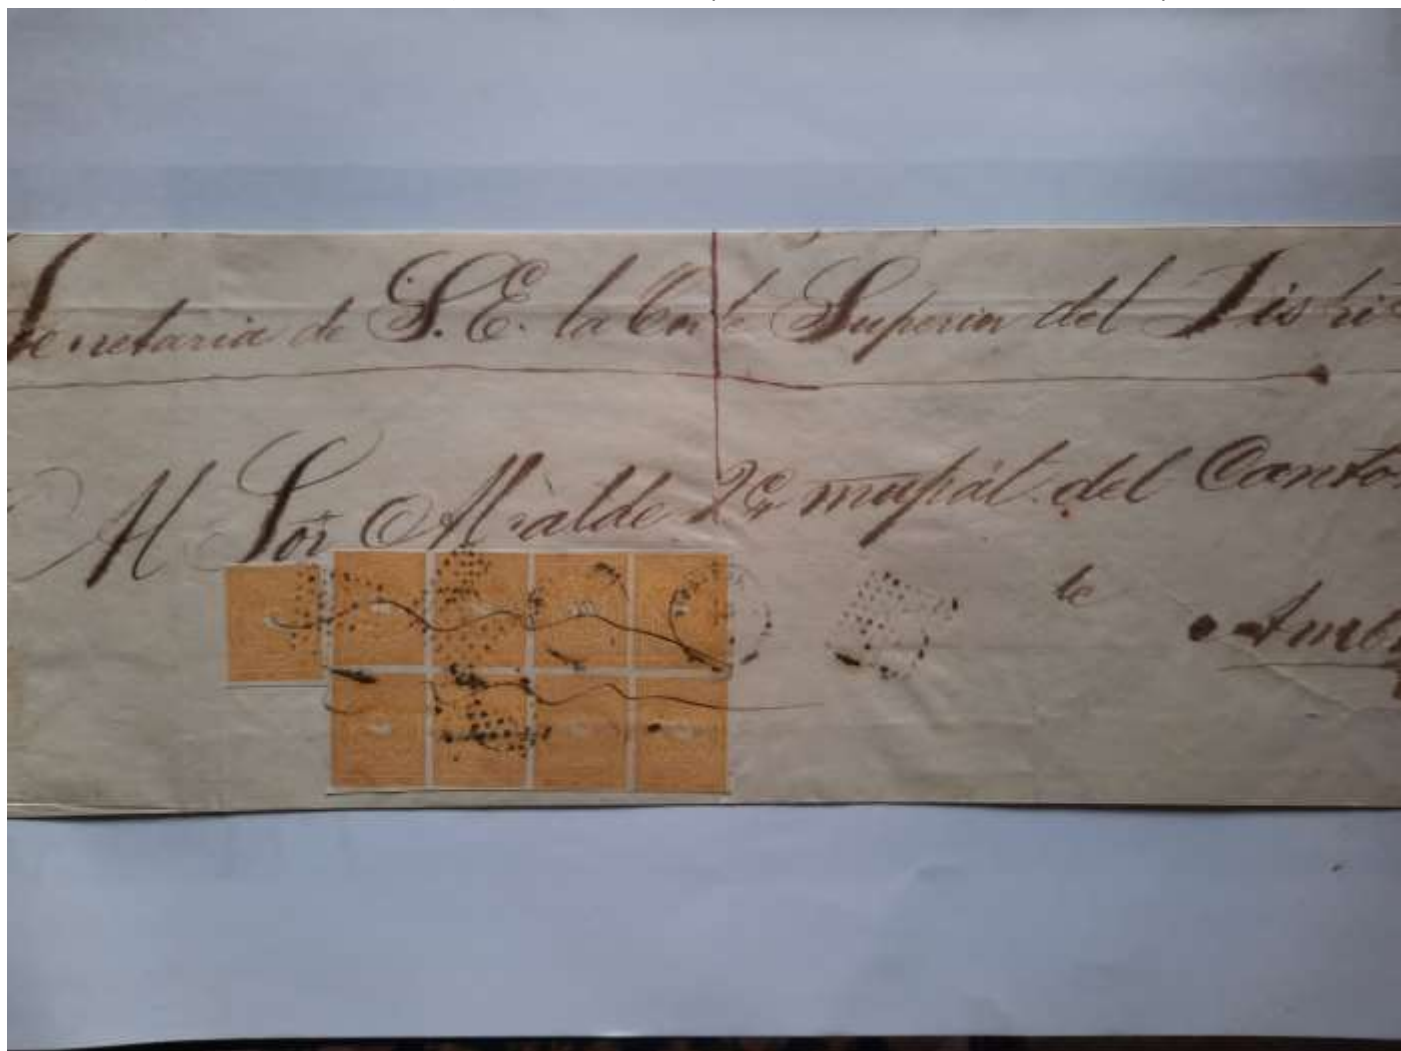 Secretaria de S. E. la Corte Superior del Distri
Al Sor Alcalde 2º mupal. del Canton
de
Amb